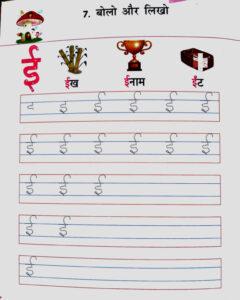 7. बोलो और लिखो
ई
ईख ईनाम ईंट
इ इ ई ई ई ई
ई ई ई ई ई ई
ई ई ई
ई ई
ई